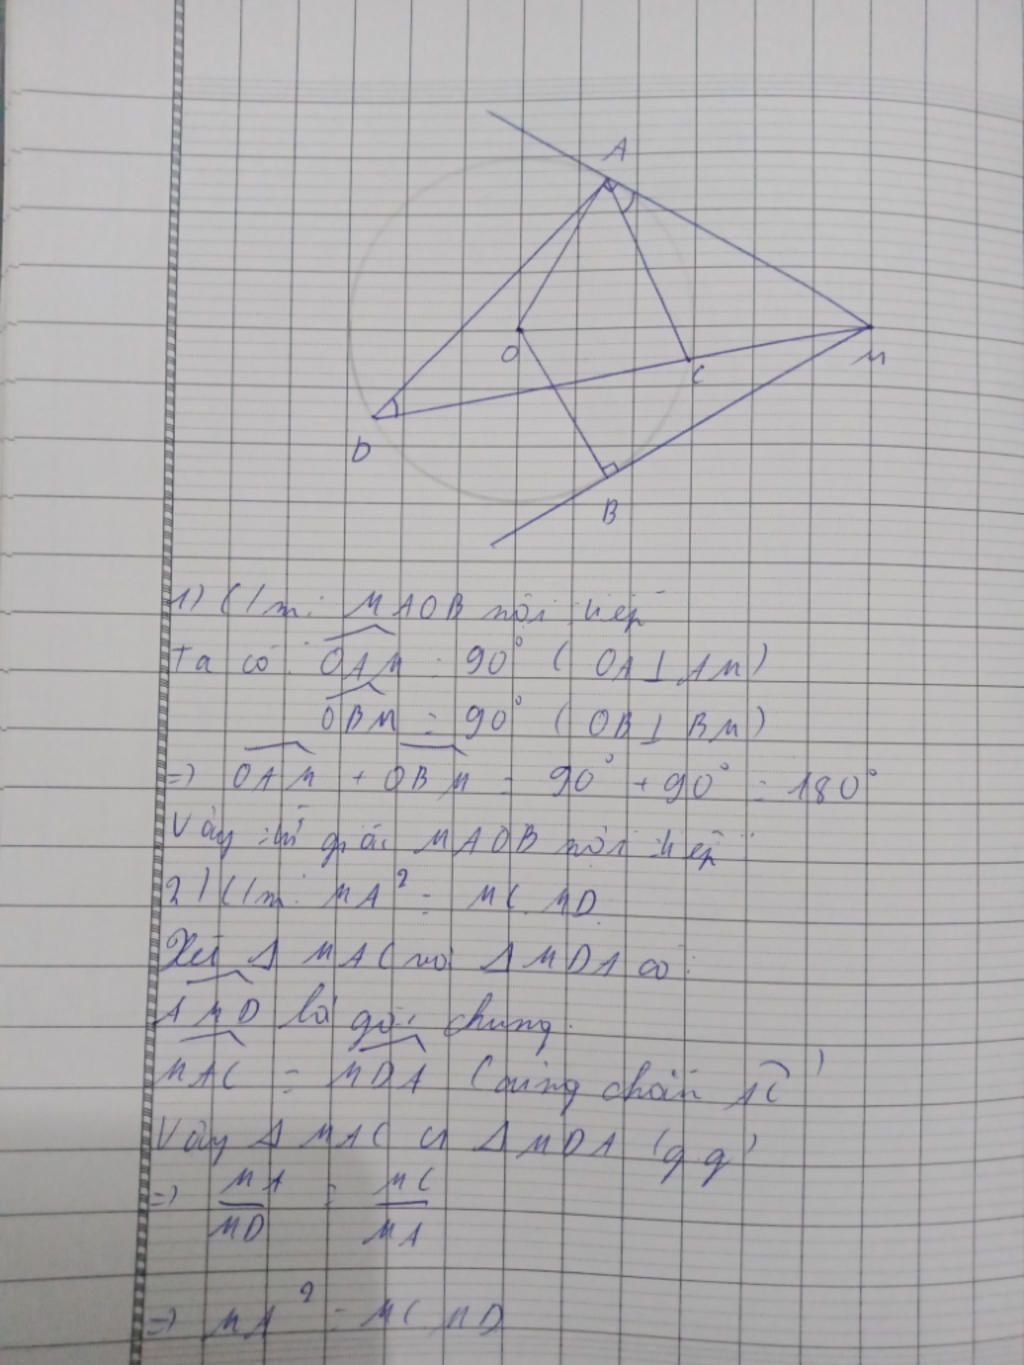 A
O
M
C
D
B
1) C/m: MAOB nội tiếp
Ta có: OAM = 90° ( OA ⊥ AM )
OBM = 90° ( OB ⊥ BM )
=> OAM + OBM = 90° + 90° = 180°
Vậy tứ giác MAOB nội tiếp
2) C/m: MA² = MC.MD
Xét Δ MAC và Δ MDA có:
AMD là góc chung.
MAC = MDA (cùng chắn AC)
Vậy Δ MAC ∽ Δ MDA (g.g)
=> MA/MD = MC/MA
=> MA² = MC.MD